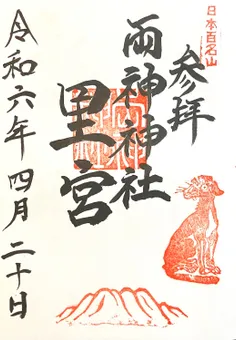 日本百名山
参拝
両神神社
里宮
令和六年四月二十日